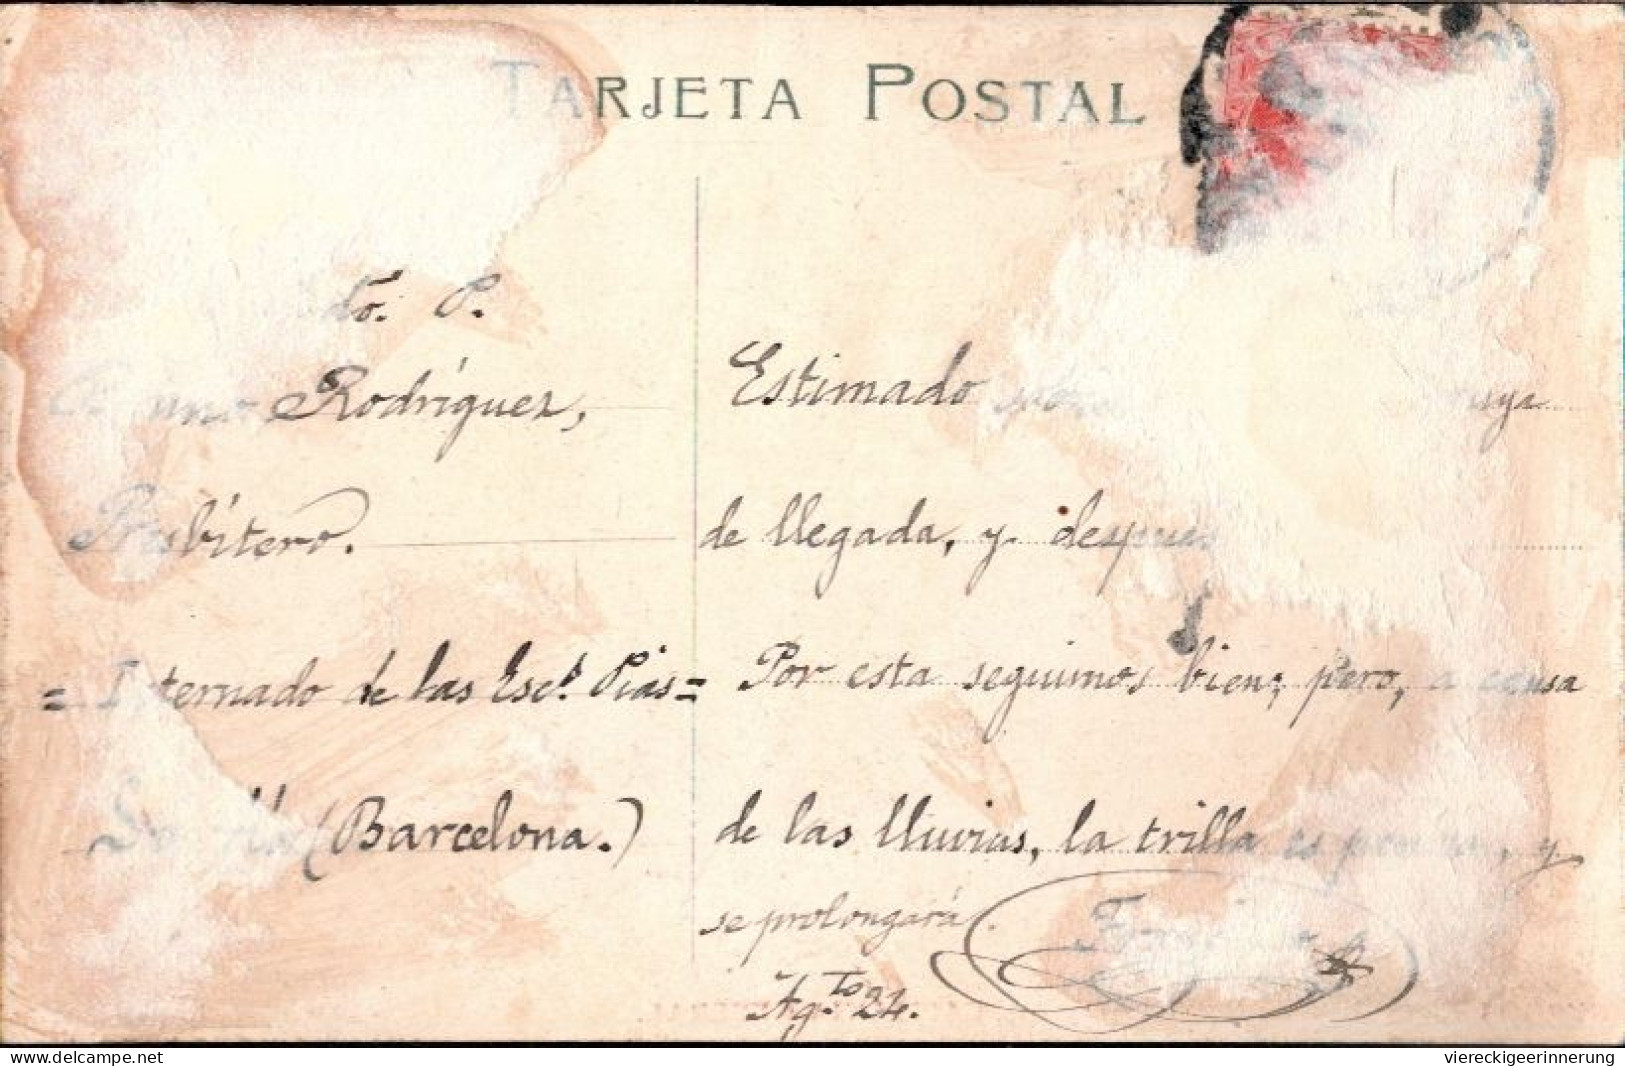 TARJETA POSTAL
do. P.
Rodríguez,
Presbítero.
= Internado de las Esc.ˢ Pías =
(Barcelona.)
Estimado
de llegada, y despues
Por esta seguimos bien; pero, a causa
de las lluvias, la trilla es y
se prolongará.
Ag.to 24.
www.delcampe.net
viereckigeerinnerung